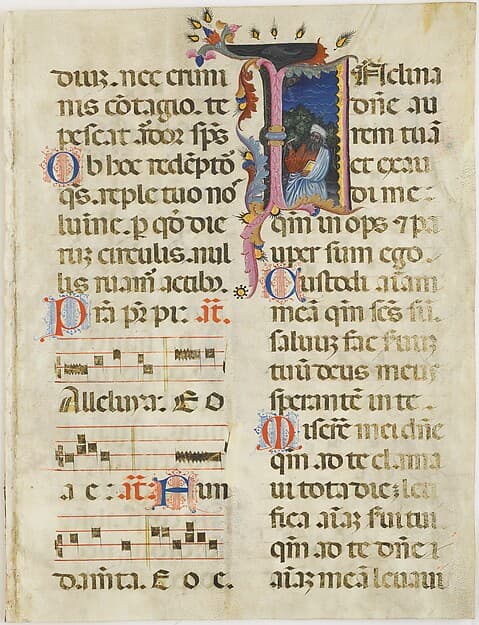 diuz. nec crimi
nis cōtagio. te
pescat ardor sp̄s
Ob hoc redēptō
qs. reple tuo no
lumine. p qd die
ruz circulis. nul
lis ruam̄ actibꝫ.
Prā pr̄ pi: añ.
Alleluya: E O
a e: añ. Mun
damīta. E O e.
Inclina
dn̄e au
rem tuā
et exau
di me.
qm̄ inops ⁊ pa
uper sum ego.
Custodi aiām
meā qm̄ scs̄ sū.
saluuz fac seruuz
tuū deus meus
sperantē in te.
Miserē mei dn̄e
qm̄ ad te clama
ui tota die: leti
fica aiāz serui tui
qm̄ ad te dn̄e
aiāz meā leuaui